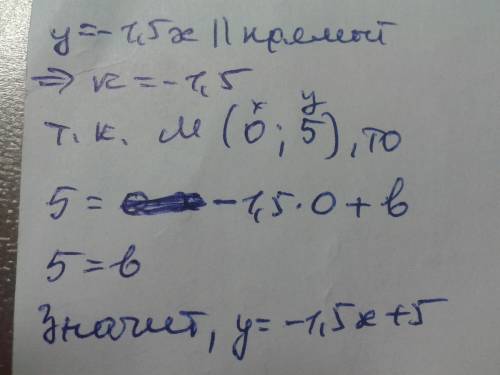 y=-1,5x || прямый
⇒ k=-1,5
т.к. M(0; 5), то
x y
5= -1,5·0+b
5=b
Значит, y=-1,5x+5